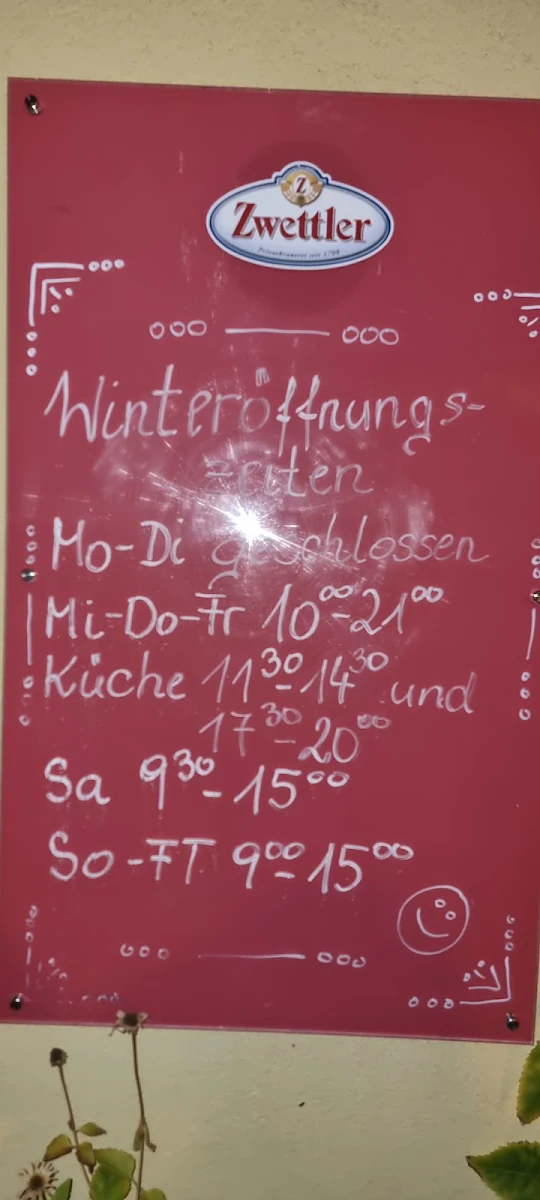 Z
Zwettler
Privatbrauerei seit 1708
Winteröffnungs-
zeiten
Mo-Di geschlossen
Mi-Do-Fr 10⁰⁰-21⁰⁰
Küche 11³⁰-14³⁰ und
17³⁰-20⁰⁰
Sa 9³⁰-15⁰⁰
So-FT 9⁰⁰-15⁰⁰